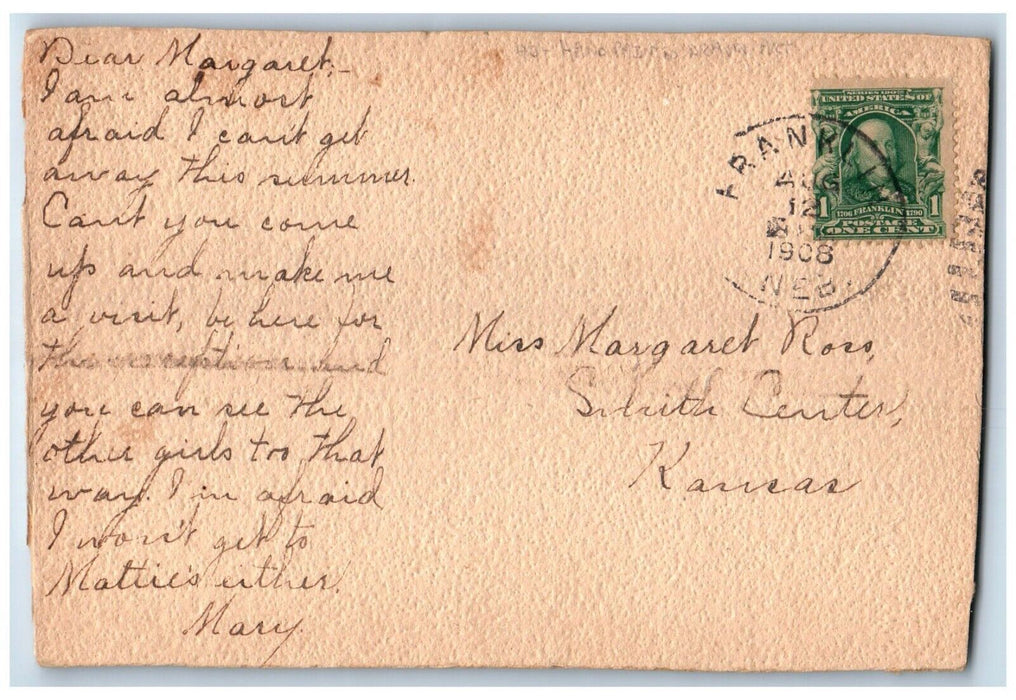 Dear Margaret,—
I am almost
afraid I can't get
away this summer.
Can't you come
up and make me
a visit, be here for
the reception and
you can see the
other girls too that
way. I'm afraid
I won't get to
Mattie's either.
Mary.
SERIES 1902
UNITED STATES OF
AMERICA
1706 FRANKLIN 1790
1 1
POSTAGE
ONE CENT
FRANKLIN
AUG
12
1908
NEB.
Miss Margaret Ross,
Smith Center,
Kansas